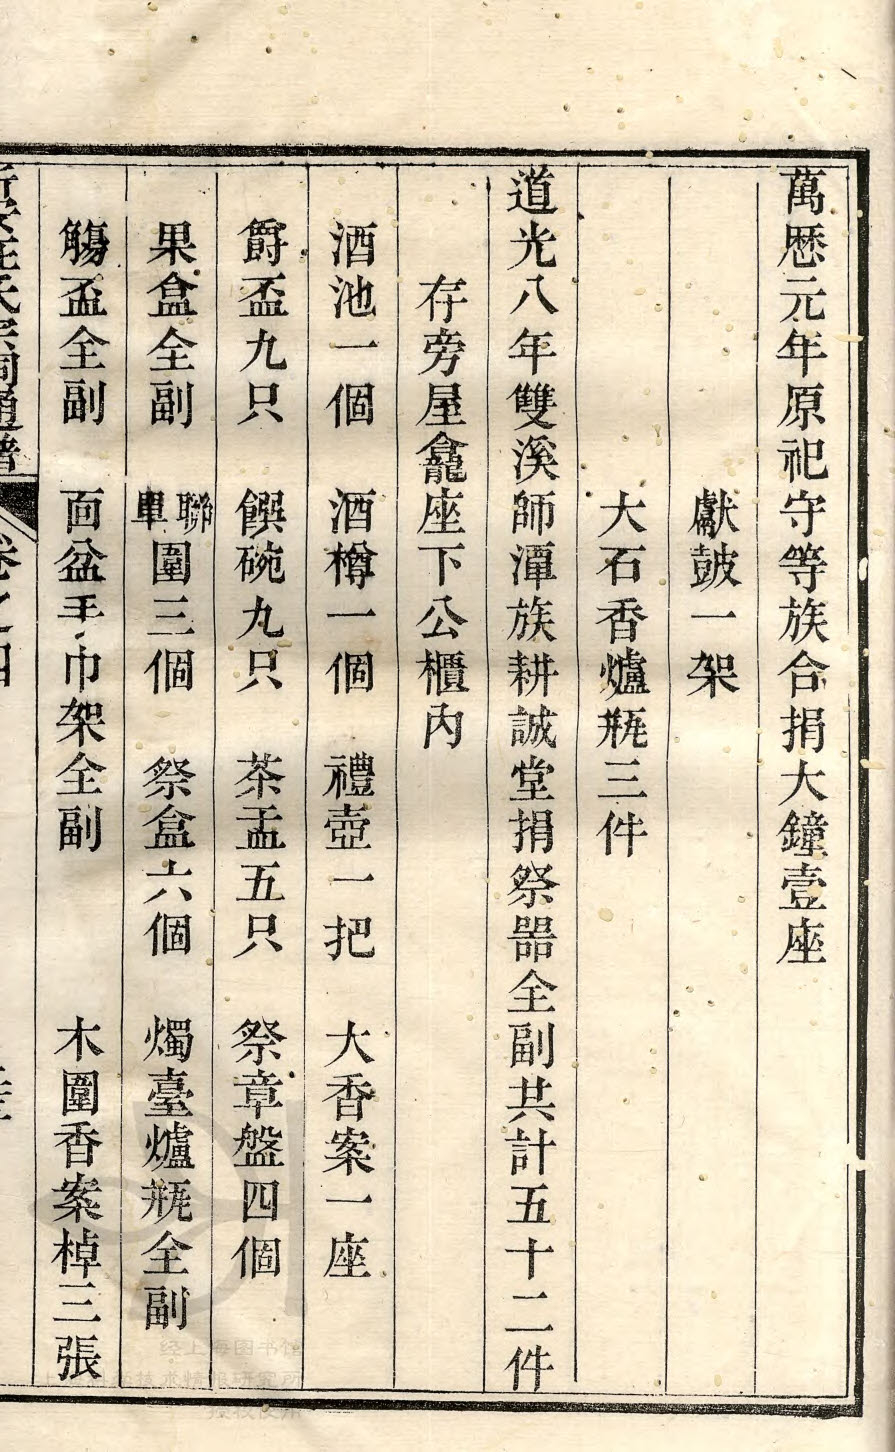 萬厯元年原祀守等族合捐大鐘壹座
獻皷一架
大石香爐瓶三件
道光八年雙溪師潭族耕誠堂捐祭器全副共計五十二件
存旁屋龕座下公櫃內
酒池一個　酒樽一個　禮壺一把　大香案一座
爵盃九只　饌碗九只　茶盂五只　祭章盤四個
果盒全副　聯單圍三個　祭盒六個　燭臺爐瓶全副
觴盃全副　面盆手巾架全副　木圍香案棹三張
氏宗祠通譜　卷之四
经上海图书馆
技术情报研究所